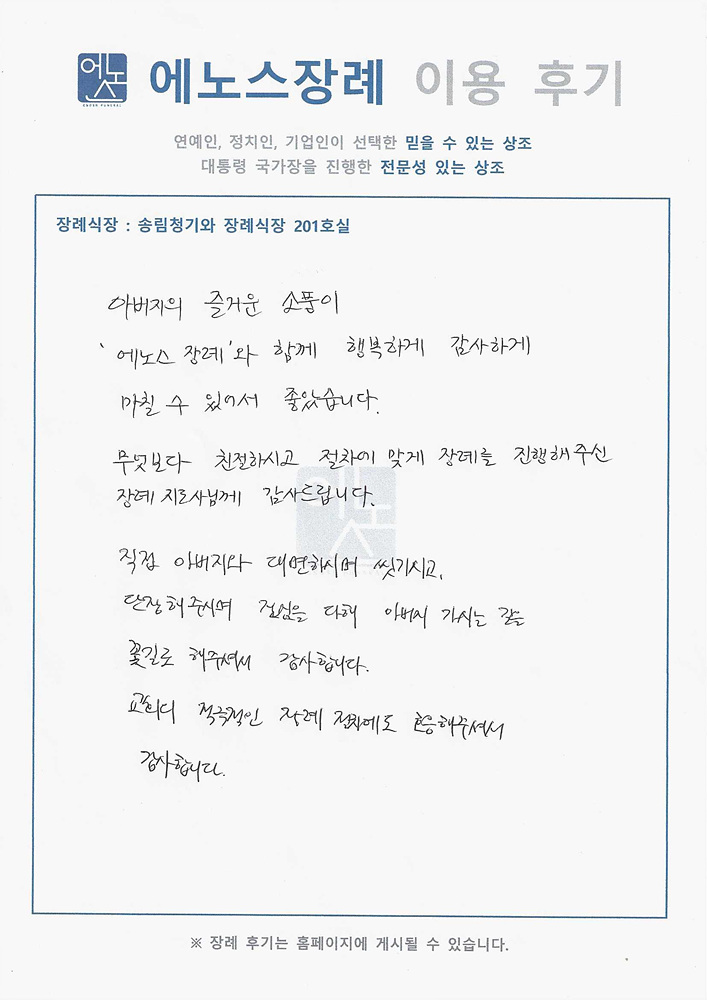 에노스
ENOSH FUNERAL
에노스장례 이용 후기
연예인, 정치인, 기업인이 선택한 믿을 수 있는 상조
대통령 국가장을 진행한 전문성 있는 상조
장례식장 : 송림청기와 장례식장 201호실
아버지의 즐거운 소풍이
'에노스 장례'와 함께 행복하게 감사하게
마칠 수 있어서 좋았습니다.
무엇보다 친절하시고 절차에 맞게 장례를 진행해 주신
장례지도사님께 감사드립니다.
직접 아버지와 대면하시며 씻기시고,
단장해주시며 진심을 다해 아버지 가시는 길을
꽃길로 해주셔서 감사합니다.
적극적인 장례 절차에도 호응해주셔서
감사합니다.
※ 장례 후기는 홈페이지에 게시될 수 있습니다.